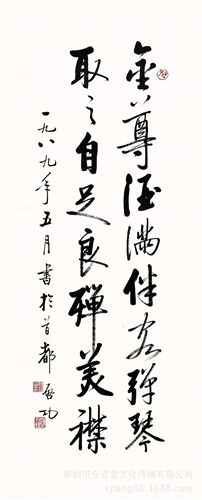 金尊酒滿伴客彈琴
取之自足良殫美襟
一九八九年五月書於首都 啟功
深圳市仓吉堂文化传播有限公司
cjtang88.1688.com